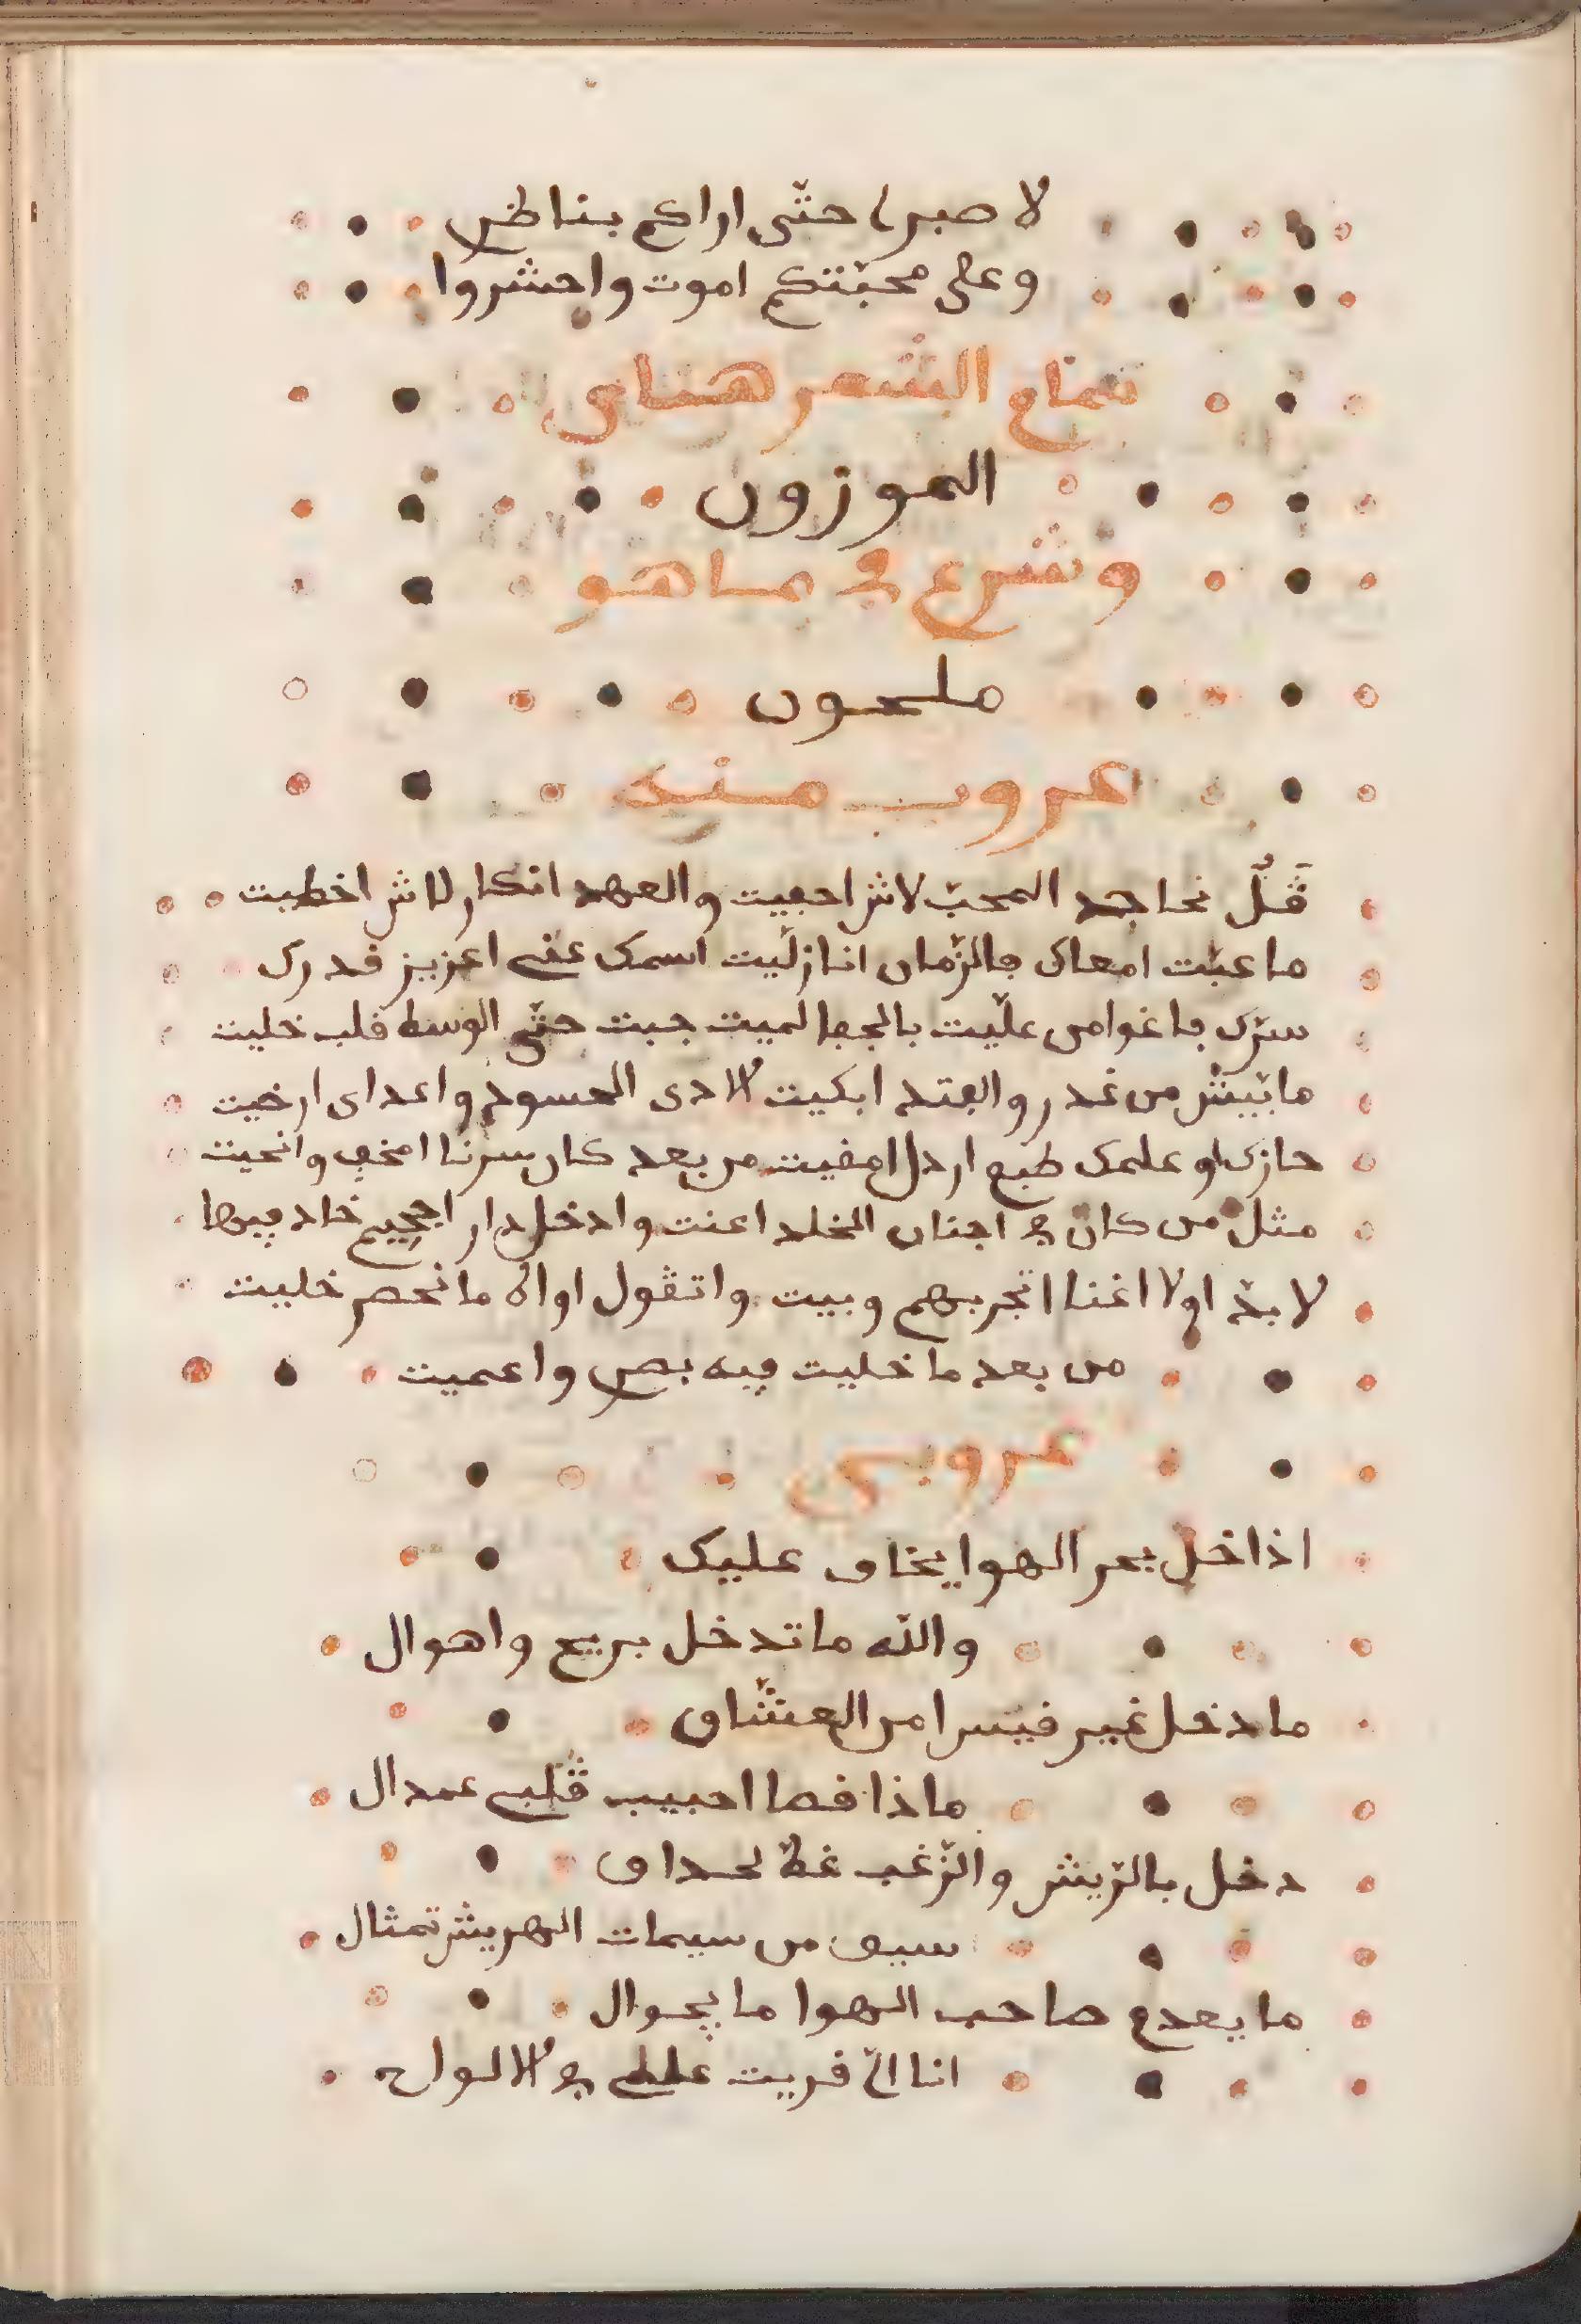 لا صبرا حتّى اراكم بناظري
وعلى محبّتكم اموت واحشروا
تمام الشعر هنا
الموزون
وشرع في ما هو
ملحون
عروب منه
ڨلّ نحا جد المحبّ لاش احببيت والعهد انكار لاش اخطيت
ما عيّت امعاك بالزّمان انا زلّيت اسمك عني اعزيز قدرك
سرّك يا غوامى علّيت بالجفا لميت جبت حتّى الوسط قلب خليت
ما بيش من غدر والفتد ابكيت لادى الحسود واعداى ارخيت
حازك او علمك طبع اردل من بعد كان سرنا امخفي وانحيت
مثل من كان في اجنان الخلد اعنت وادخل دار خاد فيها
لا بدّ اولا اغنا اتجربهم وبيت واتڨول اواه ما نحصر خليت
من بعد ما خليت فيه بصري واعميت
عروبى
اذا خل بحر الهوا يخاف عليك
والله ما تدخل بريح واهوال
ما دخل غير فيسرا من العشّاق
ماذا قصا احبيب ڨلبي عمدال
دخل بالرّيش والزّغب غطّ لحداق
سيف من سيمات الهريش تمثال
ما يعدم صاحب الهوا ما يحوال
انا الى قريت غلطي في الالواح